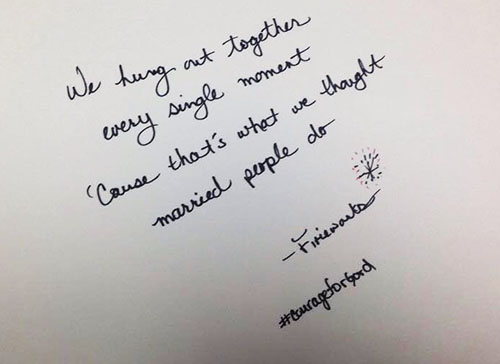 We hung out together
every single moment
'Cause that's what we thought
married people do
- Fireworks
#courageforGord